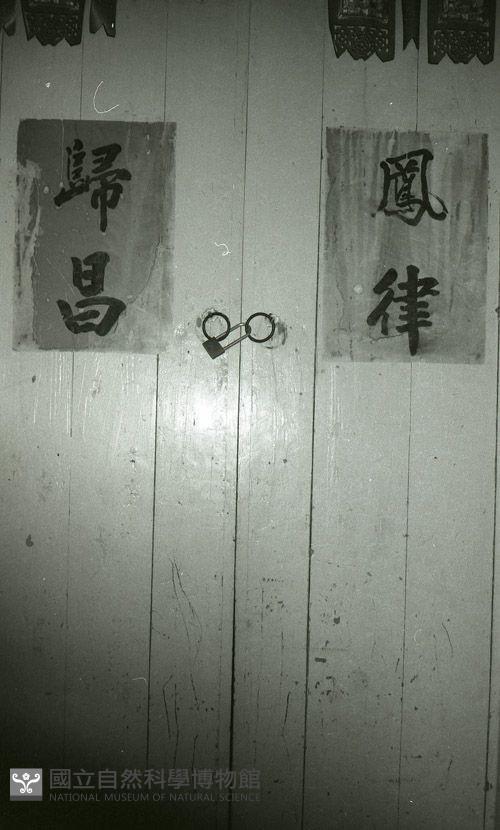 鳳律
歸昌
國立自然科學博物館
NATIONAL MUSEUM OF NATURAL SCIENCE